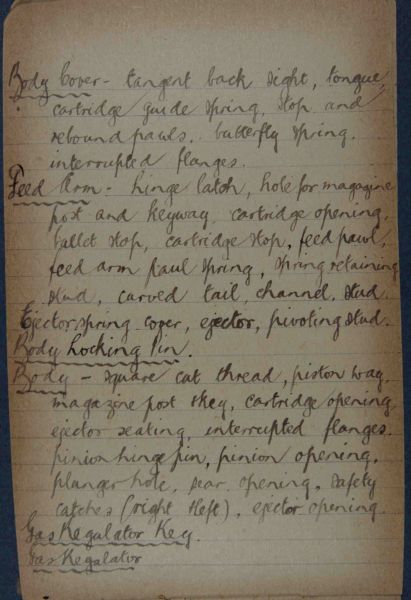 Body Cover - tangent back sight, tongue,
cartridge guide spring, stop and
rebound pawls. butterfly spring.
interrupted flanges.
Feed Arm - hinge latch, hole for magazine
post and keyway, cartridge opening,
bullet stop, cartridge stop, feed pawl,
feed arm pawl spring, spring retaining
stud, curved tail, channel, stud.
Ejector spring cover, ejector, pivoting stud.
Body Locking Pin.
Body - square cut thread, piston way,
magazine post & key, cartridge opening,
ejector seating, interrupted flanges.
pinion hinge pin, pinion opening,
plunger hole, sear opening, safety
catches (right & left), ejector opening.
Gas Regulator Key.
Gas Regulator